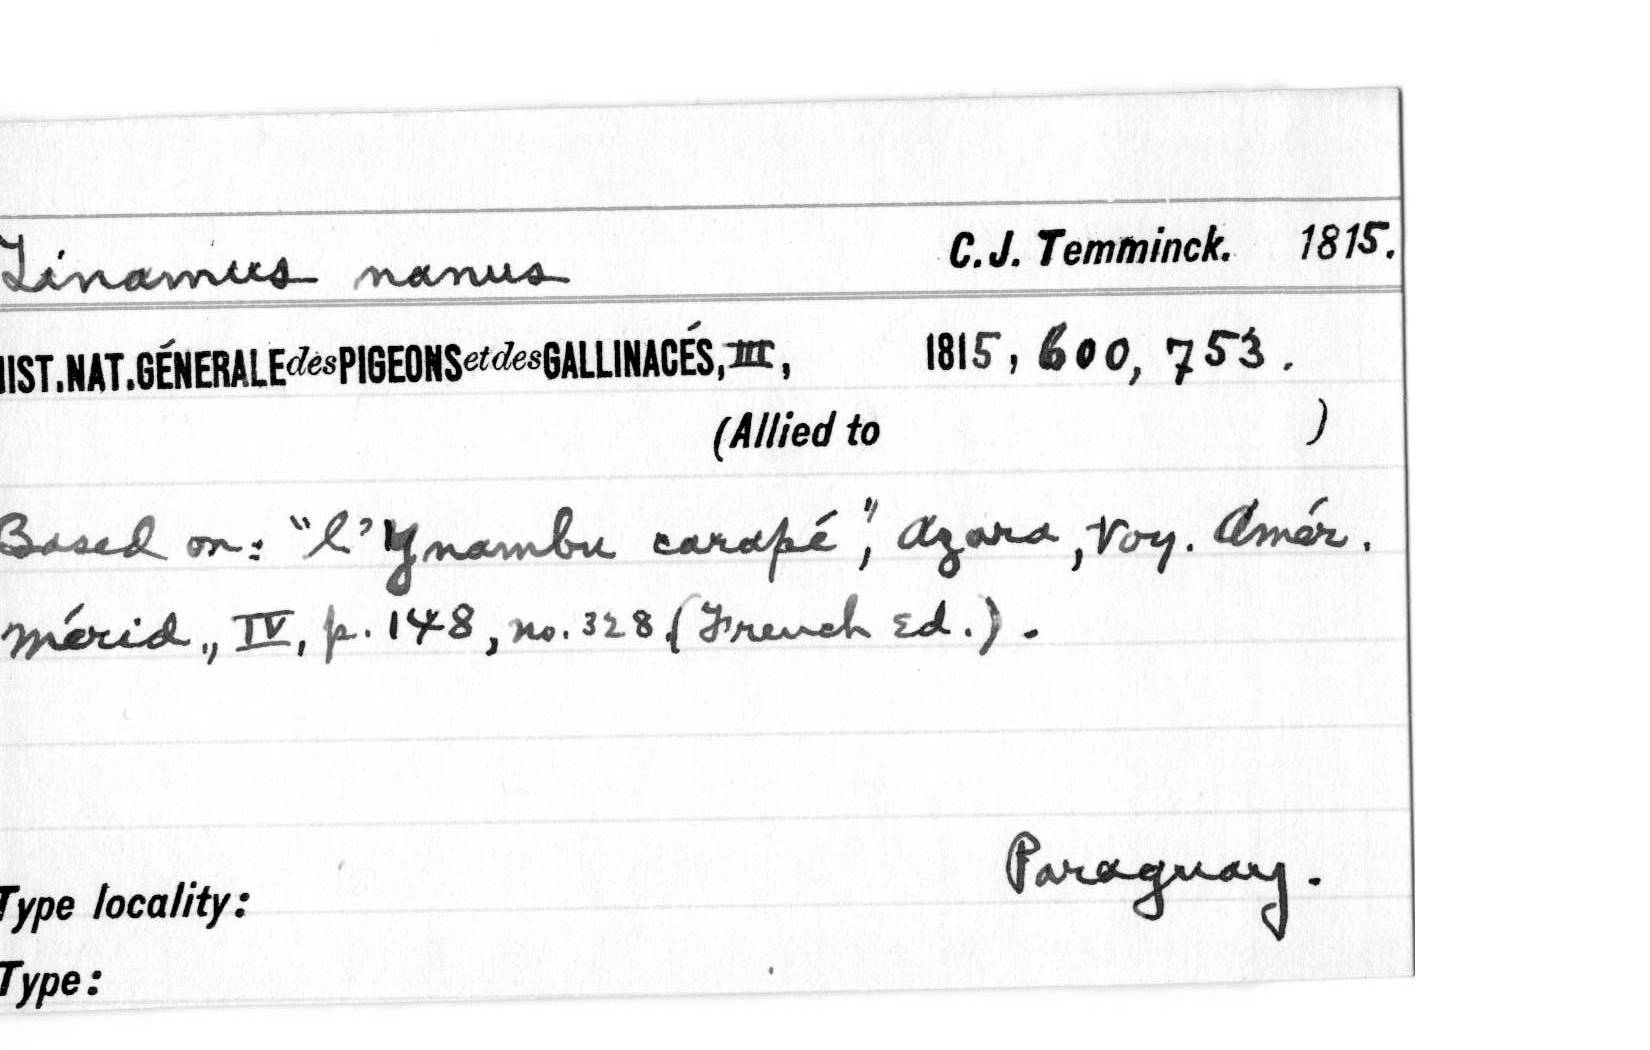 Tinamus nanus C.J. Temminck. 1815.
HIST.NAT.GÉNERALE des PIGEONS et des GALLINACÉS, III, 1815, 600, 753.
(Allied to )
Based on: "l'Ynambu carapé", Azara, Voy. Amér.
Mérid., IV, p. 148, no. 328 (French Ed.).
Paraguay.
Type locality:
Type: